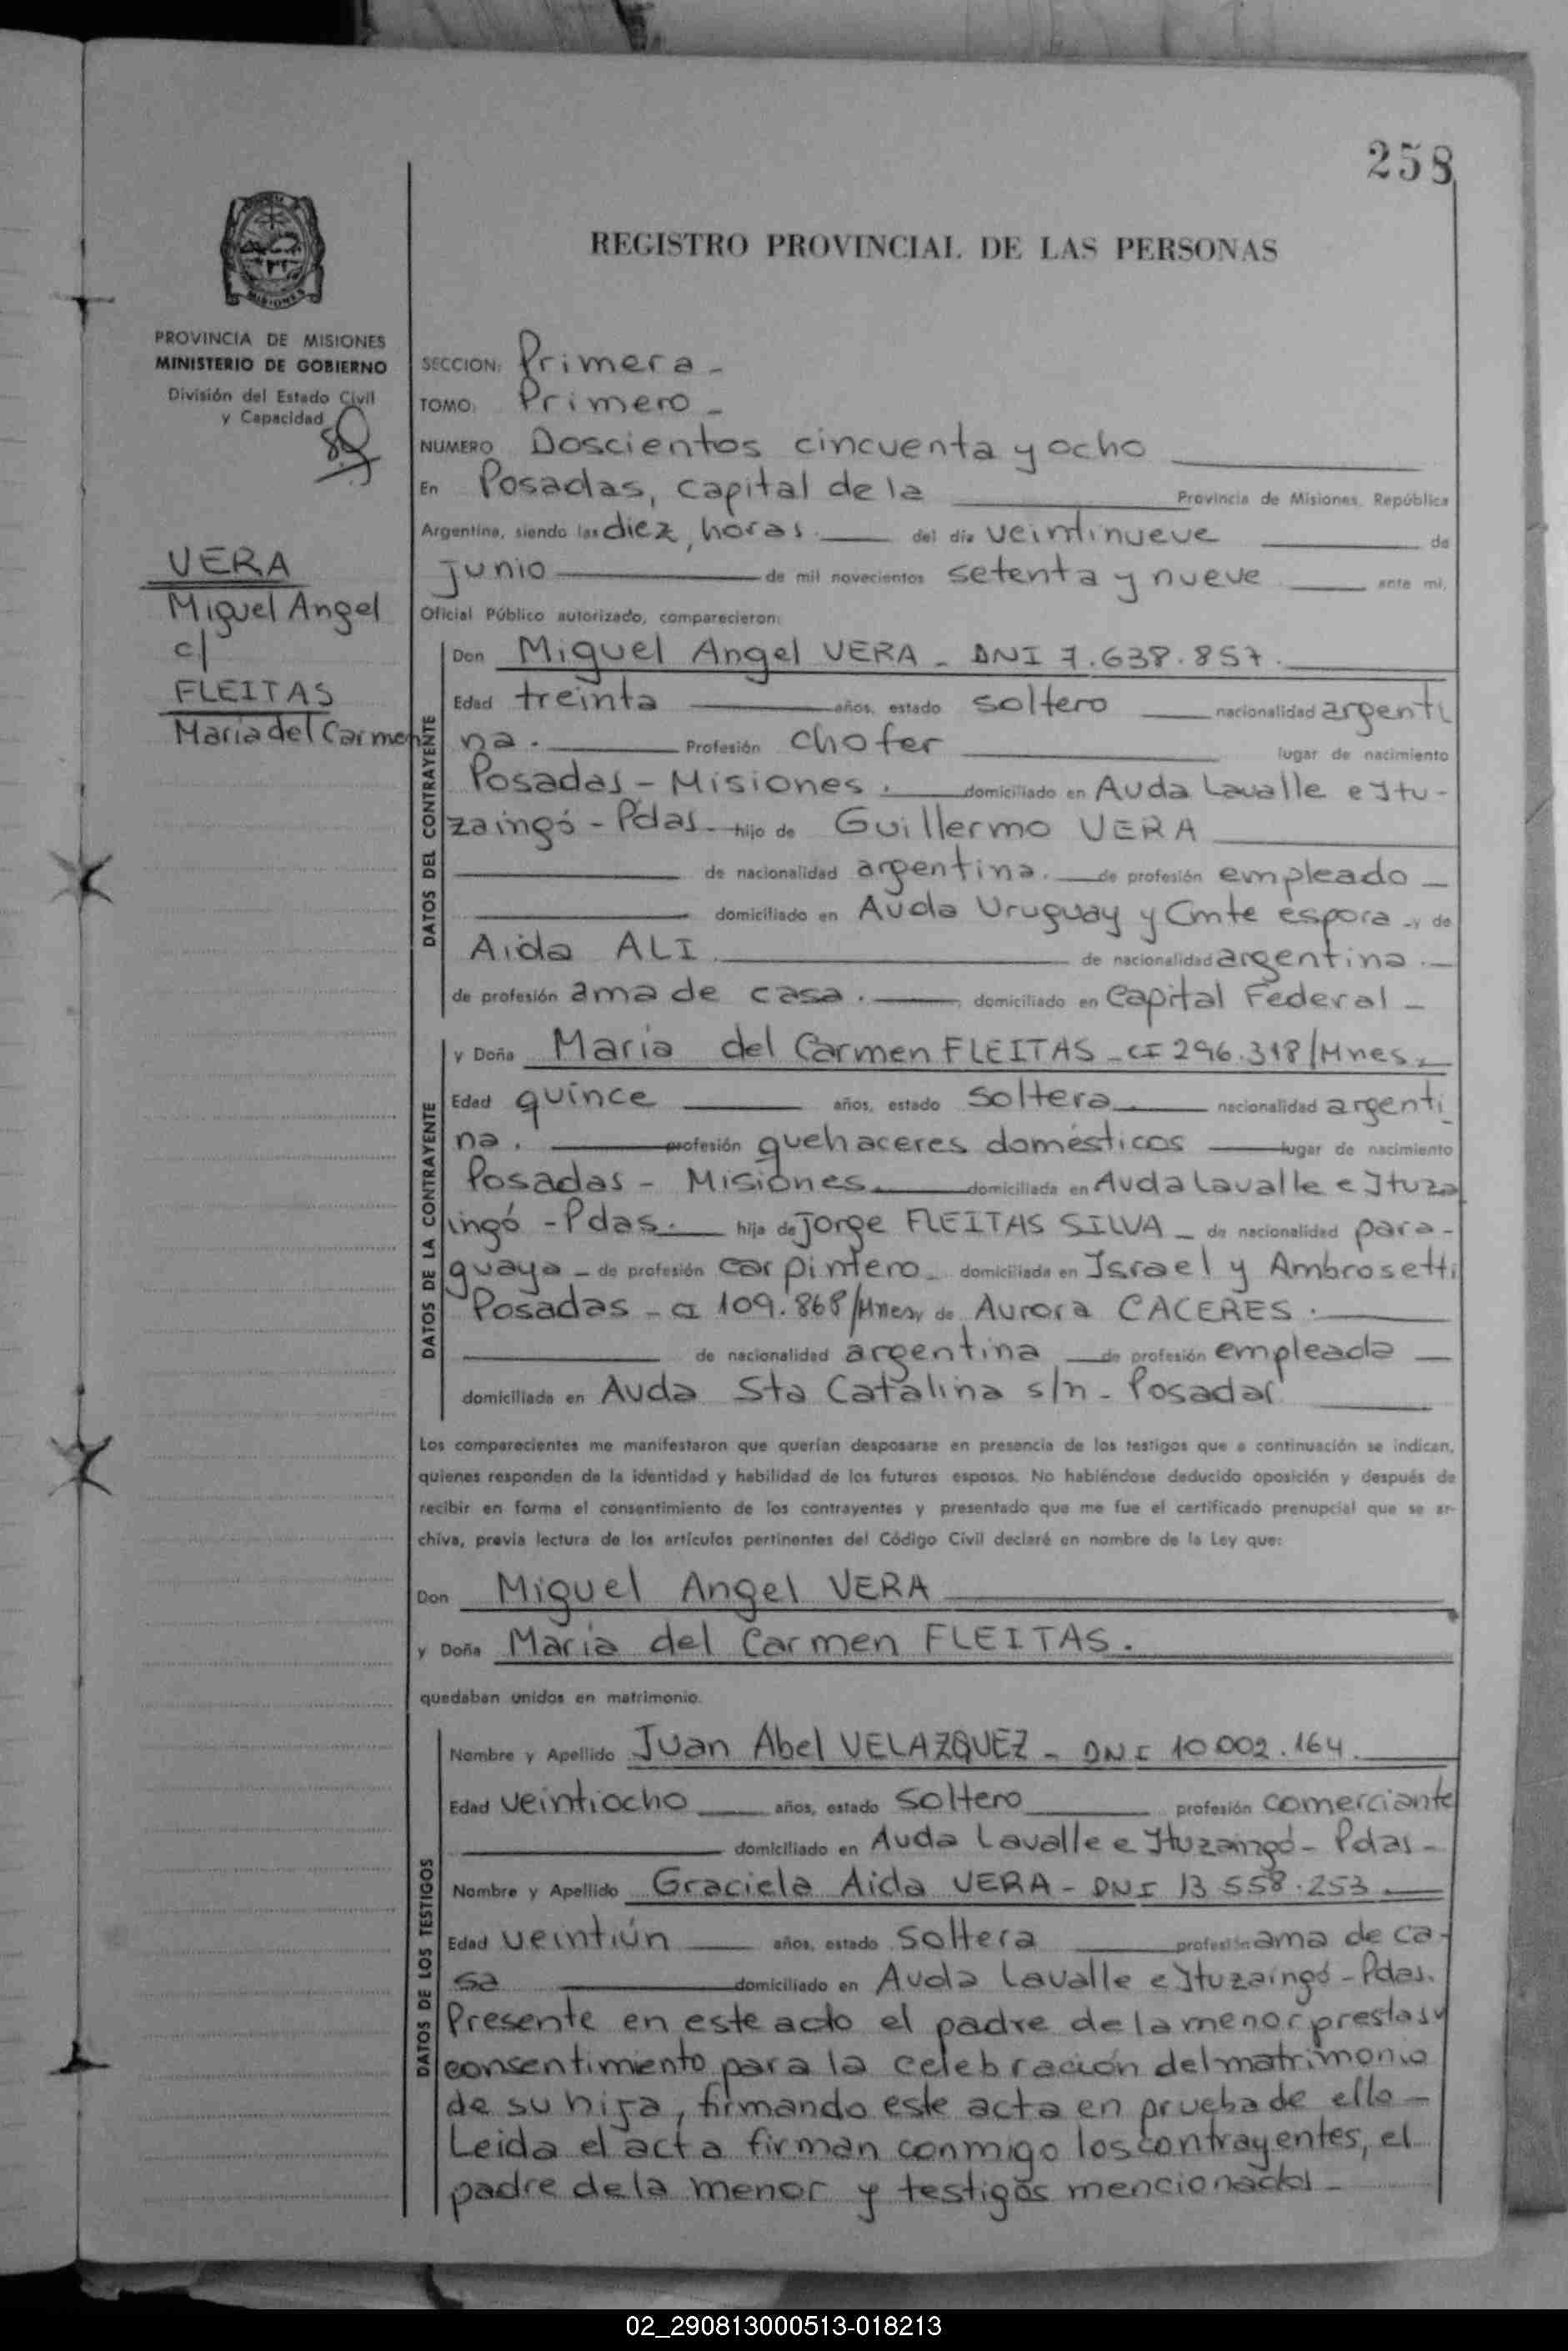 258
REGISTRO PROVINCIAL DE LAS PERSONAS
MISIONES
PROVINCIA DE MISIONES
MINISTERIO DE GOBIERNO
División del Estado Civil
y Capacidad
VERA
Miguel Angel
c/
FLEITAS
Maria del Carmen
SECCION: Primera -
TOMO: Primero -
NUMERO Doscientos cincuenta y ocho
En Posadas, capital de la Provincia de Misiones, República
Argentina, siendo las diez, horas. del día veintinueve de
junio de mil novecientos setenta y nueve ante mí,
Oficial Público autorizado, comparecieron:
DATOS DEL CONTRAYENTE
Don Miguel Angel VERA - DNI 7.638.857.
Edad treinta años, estado soltero nacionalidad argenti
na. Profesión chofer lugar de nacimiento
Posadas - Misiones. domiciliado en Avda Lavalle e Itu-
zaingó - Pdas. hijo de Guillermo VERA
de nacionalidad argentina. de profesión empleado -
domiciliado en Avda Uruguay y Cmte espora - y de
Aida ALI de nacionalidad argentina.
de profesión ama de casa. domiciliado en Capital Federal -
DATOS DE LA CONTRAYENTE
y Doña Maria del Carmen FLEITAS - CI 296.318/Mnes.
Edad quince años, estado soltera nacionalidad argenti
na. profesión quehaceres domésticos lugar de nacimiento
Posadas - Misiones. domiciliada en Avda Lavalle e Ituza
ingó - Pdas. hija de Jorge FLEITAS SILVA - de nacionalidad para-
guaya - de profesión carpintero - domiciliada en Israel y Ambrosetti
Posadas - CI 109.868/Mnes y de Aurora CACERES.
de nacionalidad argentina de profesión empleada
domiciliada en Avda Sta Catalina s/n - Posadas
Los comparecientes me manifestaron que querían desposarse en presencia de los testigos que a continuación se indican,
quienes responden de la identidad y habilidad de los futuros esposos. No habiéndose deducido oposición y después de
recibir en forma el consentimiento de los contrayentes y presentado que me fue el certificado prenupcial que se ar-
chiva, previa lectura de los artículos pertinentes del Código Civil declaré en nombre de la Ley que:
Don Miguel Angel VERA
y Doña Maria del Carmen FLEITAS.
quedaban unidos en matrimonio.
DATOS DE LOS TESTIGOS
Nombre y Apellido Juan Abel VELAZQUEZ - DNI 10.002.164.
Edad veintiocho años, estado soltero profesión comerciante
domiciliado en Avda Lavalle e Ituzaingó - Pdas -
Nombre y Apellido Graciela Aida VERA - DNI 13.558.253.
Edad veintiún años, estado soltera profesión ama de ca-
sa domiciliado en Avda Lavalle e Ituzaingó - Pdas.
Presente en este acto el padre de la menor presta su
consentimiento para la celebración del matrimonio
de su hija, firmando este acta en prueba de ello -
Leida el acta firman conmigo los contrayentes, el
padre de la menor y testigos mencionados -
02_290813000513-018213